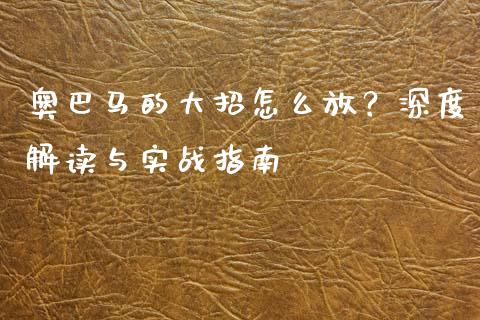 奥巴马的大招怎么放？深度
解读与实战指南